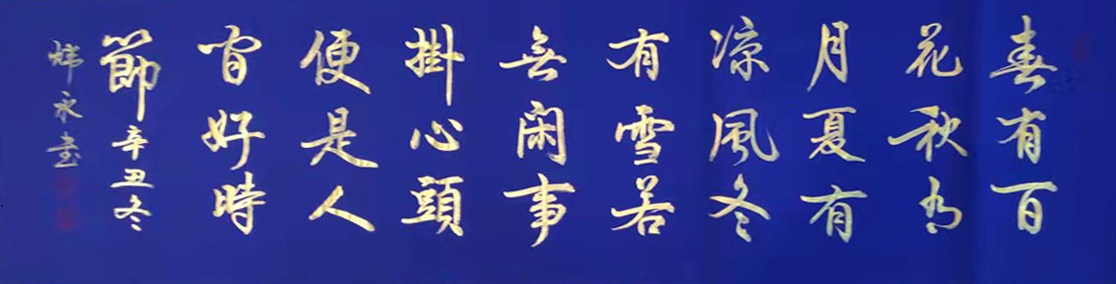 春有百
花秋有
月夏有
凉風冬
有雪若
無閑事
掛心頭
便是人
間好時
節辛丑冬
永書